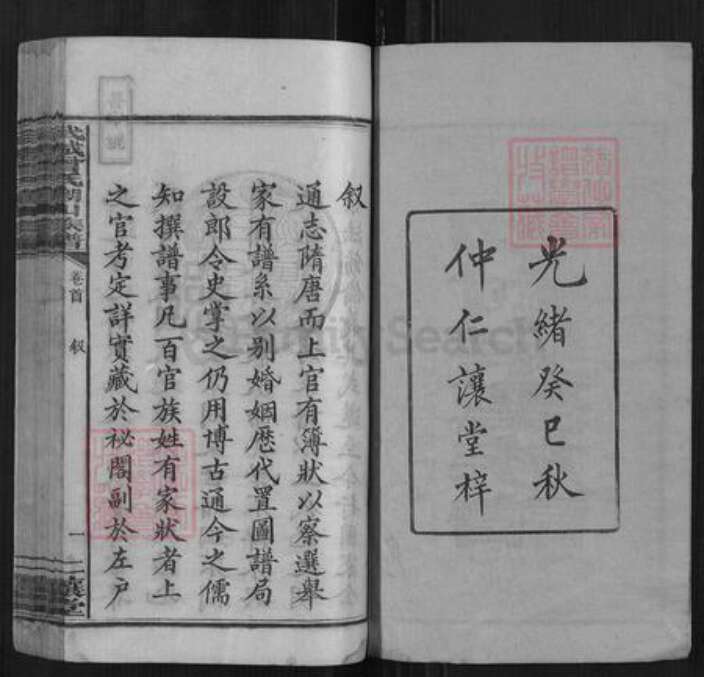 光緒癸巳秋
仲仁讓堂梓
叙
通志隋唐而上官有簿狀以察選舉
家有譜系以别婚姻歷代置圖譜局
設郎令史掌之仍用博古通今之儒
知撰譜事凡百官族姓有家狀者上
之官考定詳實藏於祕閣副於左戶
卷首
叙
一